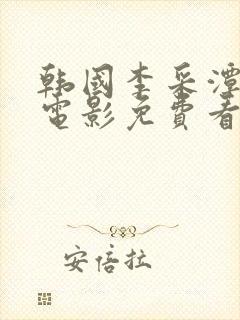 韩国李采潭
电影免費看
安倍拉